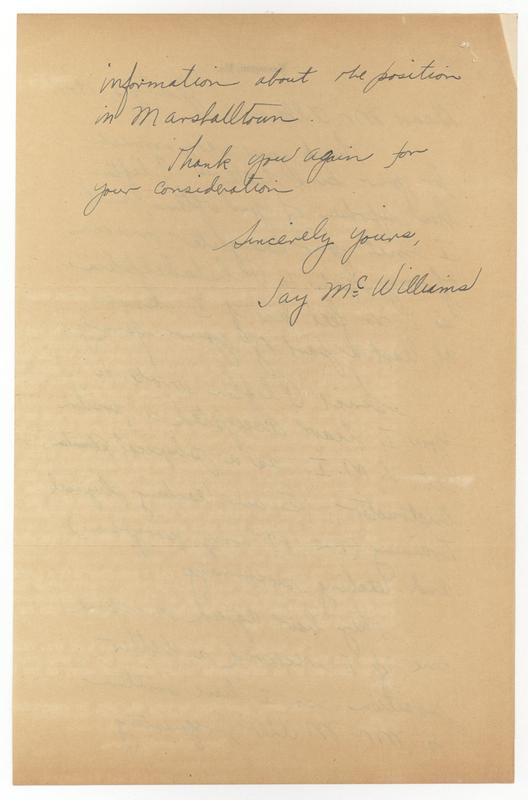 information about the position
in Marshalltown.
Thank you again for
your consideration
Sincerely yours,
Jay McWilliams